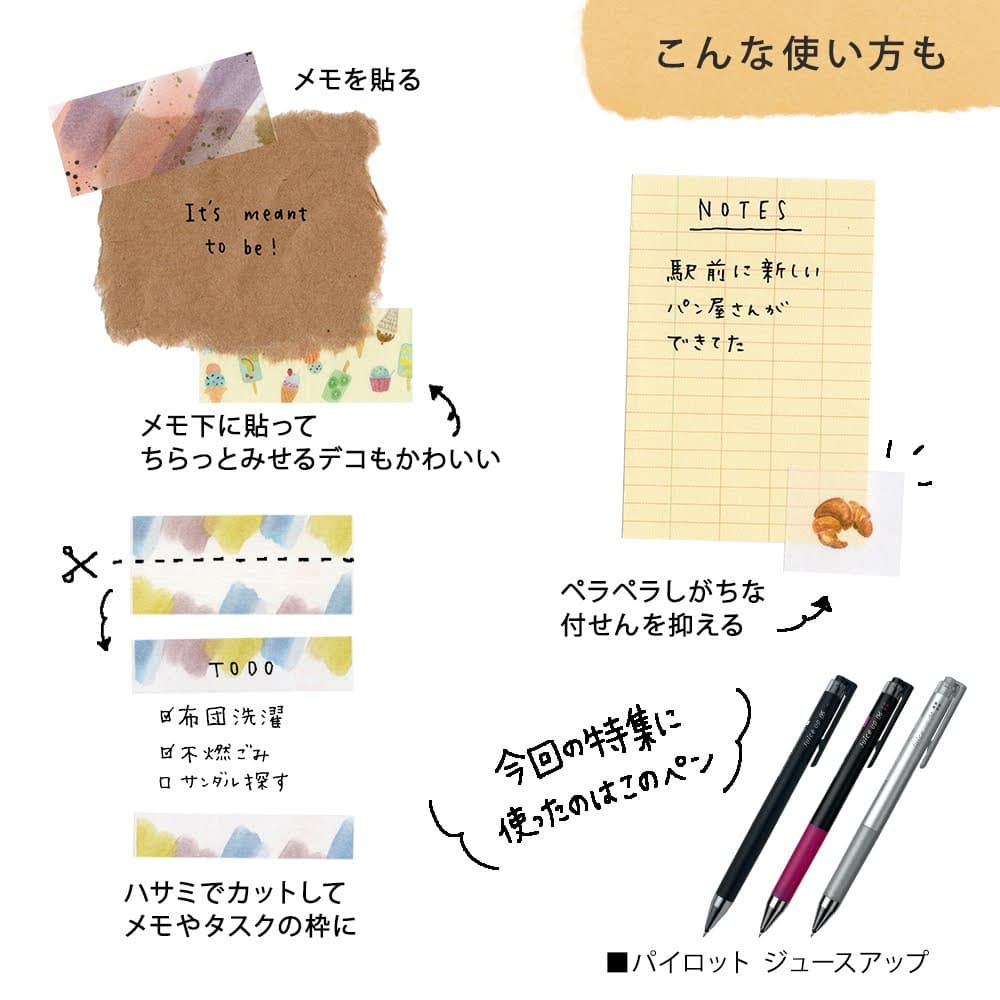 こんな使い方も
メモを貼る
It's meant
to be!
メモ下に貼って
ちらっとみせるデコもかわいい
NOTES
駅前に新しい
パン屋さんが
できてた
ペラペラしがちな
付せんを抑える
TODO
☑布団洗濯
☑不燃ごみ
□サンダル探す
ハサミでカットして
メモやタスクの枠に
今回の特集に
使ったのはこのペン
Juice up 04
Juice up 04
■パイロット ジュースアップ